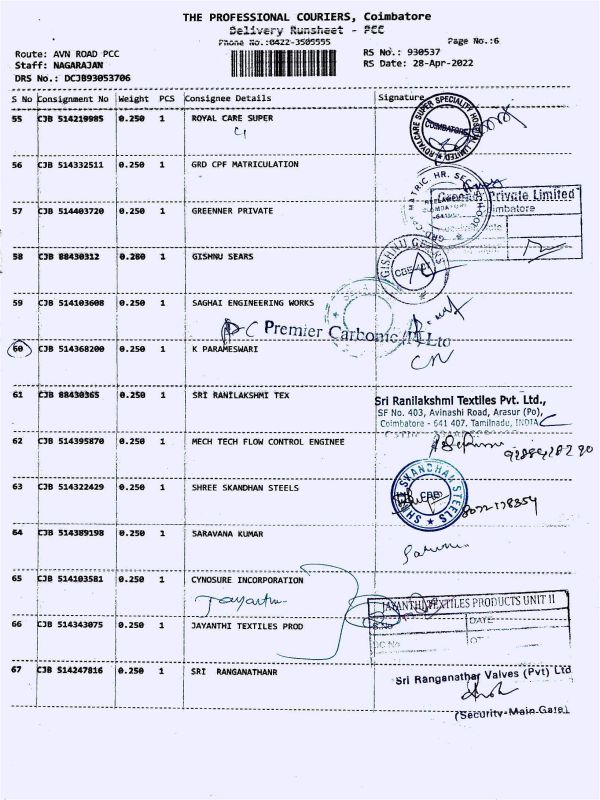 THE PROFESSIONAL COURIERS, Coimbatore
Delivery Runsheet - PCC
Phone No.:0422-3505555
Page No.:6
Route: AVN ROAD PCC
Staff: NAGARAJAN
DRS No.: DCJB93053706
RS No.: 930537
RS Date: 28-Apr-2022
S No Consignment No Weight PCS Consignee Details Signature
55 CJB 514219985 0.250 1 ROYAL CARE SUPER
ROYALCARE SUPER SPECIALITY HOSPITAL LIMITED
COIMBATORE
56 CJB 514332511 0.250 1 GRD CPF MATRICULATION
GRD CPF MATRIC. HR. SEC. SCHOOL
57 CJB 514403720 0.250 1 GREENNER PRIVATE
Private Limited
Coimbatore
58 CJB 88430312 0.280 1 GISHNU SEARS
GISHNU GEARS
CBE-407
59 CJB 514103608 0.250 1 SAGHAI ENGINEERING WORKS
Premier Carbonic (P) Ltd
60 CJB 514368200 0.250 1 K PARAMESWARI
61 CJB 88430365 0.250 1 SRI RANILAKSHMI TEX
Sri Ranilakshmi Textiles Pvt. Ltd.,
SF No. 403, Avinashi Road, Arasur (Po),
Coimbatore - 641 407. Tamilnadu, INDIA
62 CJB 514395870 0.250 1 MECH TECH FLOW CONTROL ENGINEE
63 CJB 514322429 0.250 1 SHREE SKANDHAN STEELS
SHREE SKANDHAN STEELS
64 CJB 514389198 0.250 1 SARAVANA KUMAR
65 CJB 514103581 0.250 1 CYNOSURE INCORPORATION
Jayanthi
66 CJB 514343075 0.250 1 JAYANTHI TEXTILES PROD
JAYANTHI TEXTILES PRODUCTS UNIT II
S.No
DATE
DC No
67 CJB 514247816 0.250 1 SRI RANGANATHANR
Sri Ranganathar Valves (Pvt) Ltd
(Security-Main Gate)